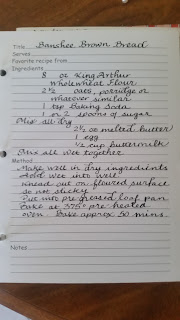 Title Banshee Brown Bread
Serves
Favorite recipe from
Ingredients
8 oz King Arthur
Whole Wheat Flour
2 1/2 oats, porridge or
whatever similar
1 tsp Baking Soda
1 or 2 spoons of sugar
Mix all dry
2 1/2 oz melted butter
1 egg
1/2 cup buttermilk
Mix all wet together
Method
Make well in dry ingredients
Add wet into well
Knead out on floured surface
so not sticky
Put into pre greased loaf pan
Bake at 375° pre heated
oven. Bake approx 50 mins.
Notes